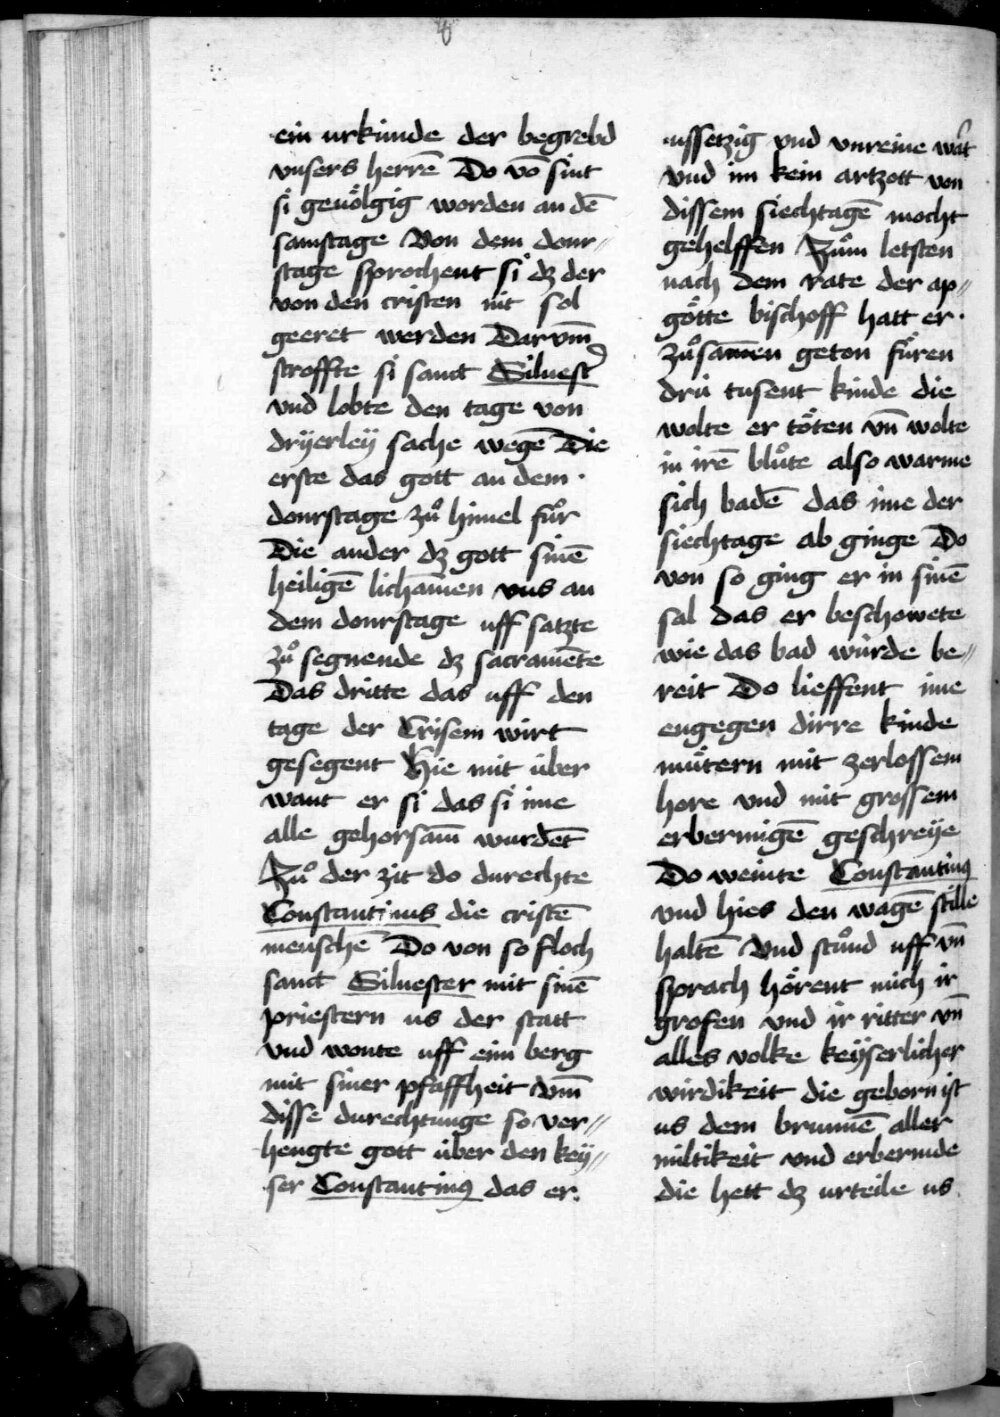 ein urkunde der begrebd
vnsers herrē Do vō sint
si geuölgig worden an dē
samstage Von dem donr⸗
stage sprochent si dʒ der
von den cristen nit sol
geeret werden Darvm̄
stroffte si sanct Siluest᷑
vnd lobte den tage von
drÿerleÿ sache wegē Die
erste das gott an dem
donrstage zuͦ himel fuͦr
Die ander dʒ gott sinē
heiligē lichāmen vns an
dem donrstage uff satzte
zuͦ segnende dʒ sacramēte
Das dritte das uff den
tage der Crisem wirt
gesegent Hie mit über
want er si das si ime
alle gehorsam̄ wurdēt
Zuͦ der zit do durechte
Constantinus die cristē
menschē Do von so floch
sanct Siluester mit sinē
priestern us der statt
vnd wonte uff eim berg
mit siner pfaffheit Vm̄
disse durechtunge so ver⸗
hengte gott über den keÿ⸗
ser Constantinꝰ das er
ussetzig vnd vnreine wart
vnd im kein artzott von
dissem siechtagē mocht
gehelffen Zuͦm letsten
nach dem rate der ap⸗
götte bischoff hatt er
zuͦsam̄en geton füren
drü tusent kinde die
wolte er töten vn̄ wolte
in irē bluͦte also warme
sich badē das ime der
siechtage ab ginge Do
von so ging er in sinē
sal das er beschowete
wie das bad würde be⸗
reit Do lieffent ime
engegen dirre kinde
muͤtern mit zerlossem
hore vnd mit grossem
erbermigē geschreÿe
Do weinte Constantinꝰ
vnd hies den wagē stille
haltē Vnd stuͦnd uff vn̄
sprach hörent mich ir
grofen vnd ir ritter vn̄
alles volke keÿserlicher
wirdikeit die geborn ist
us dem brunnē aller
miltikeit vnd erbermde
die hett dʒ urteile us